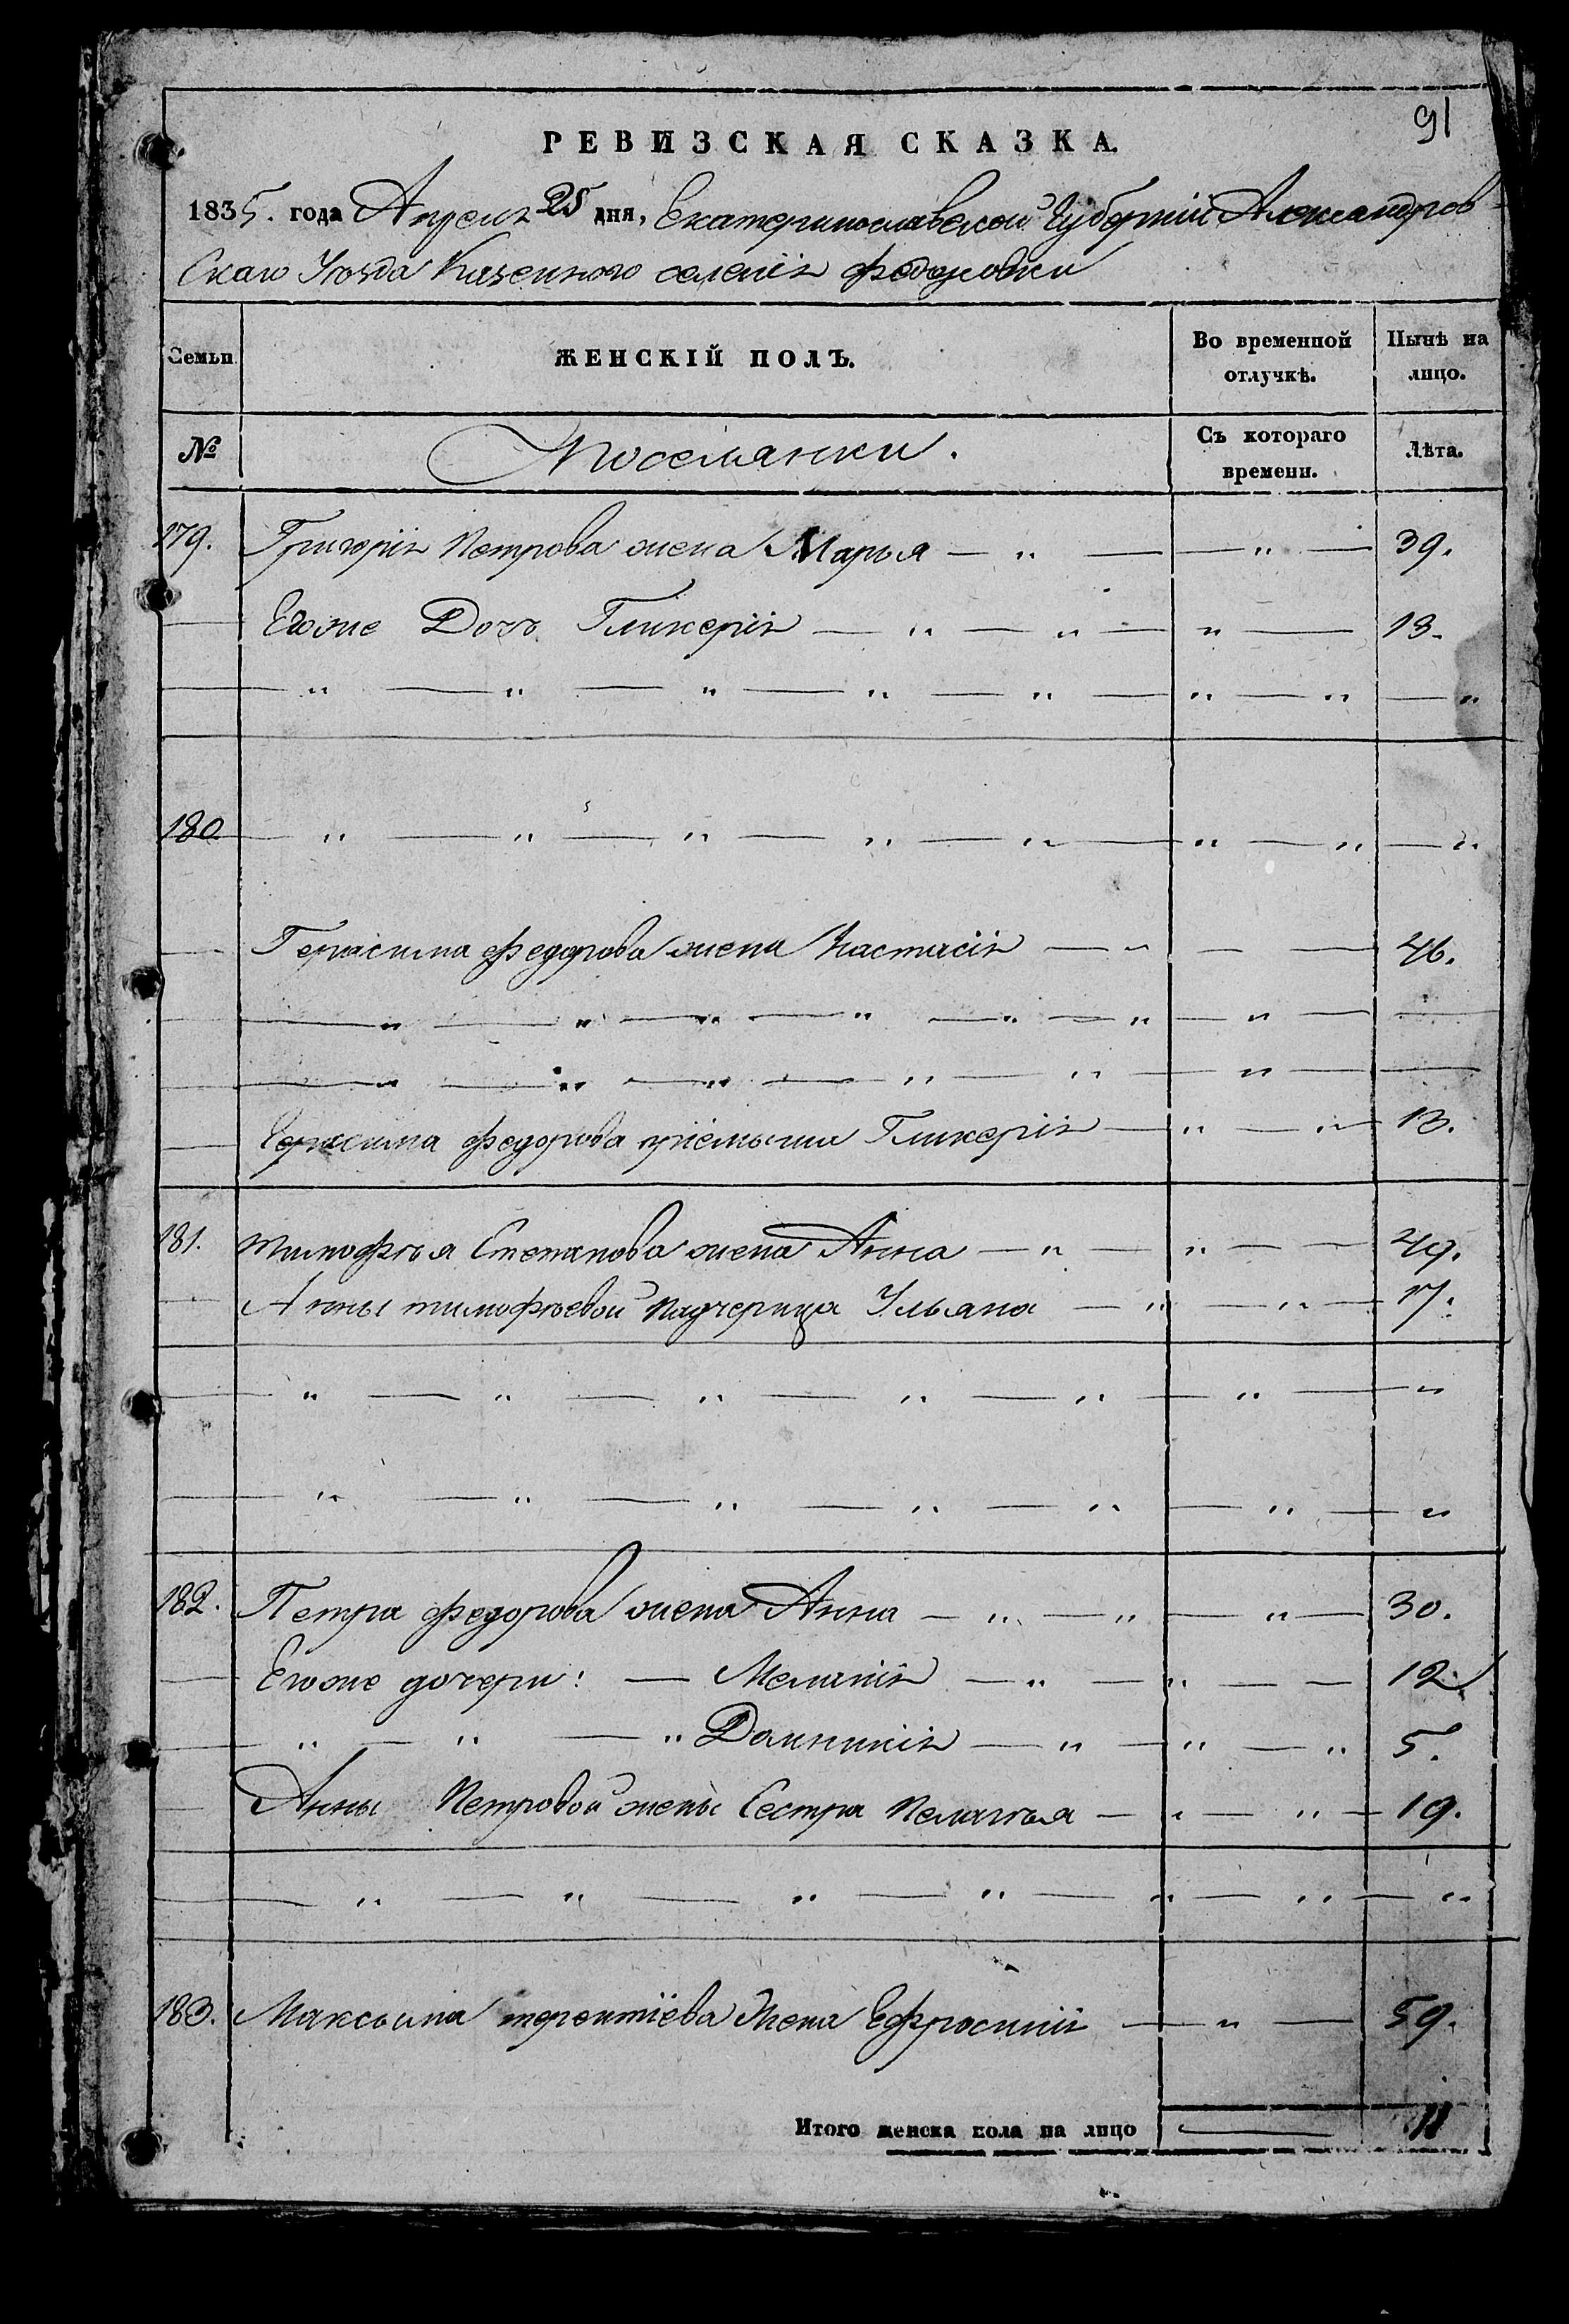 91
РЕВИЗСКАЯ СКАЗКА.
1835. года Апреля 25 дня, Екатеринославской Губерніи Александров-
скаго Уѣзда Казенного селенія Федоровки
Семьи ЖЕНСКІЙ ПОЛЪ. Во временной отлучкѣ. Нынѣ на лицо.
№ Поселянки. Съ котораго времени. Лѣта.
179. Григорія Петрова жена Марья — " — — " — 39.
— Егоже Дочь Гликерія — " — " — " — 13.
— " — " — " — " — " — " — " — "
180 — " — " — " — " — " — " — " — "
— Герасима Федорова жена Настасія — " — — 46.
— " — " — " — " — " — " — " — —
— " — " — " — " — " — " — —
— Герасима Федорова пріемыша Гликерія — " — " — 13.
181. Тимофѣя Степанова жена Анна — " — " — — 49.
— Анны тимофѣевой падчерица Ульяна — " — " — 17.
— " — " — " — " — " — " — "
— " — " — " — " — " — " — "
182. Петра Федорова жена Анна — " — " — " — 30.
— Егоже дочери: — Меланія — " — " — — 12.
— " — " — " Домникія — " — " — " 5.
— Анны Петровой жены Сестра Пелагѣя — " — " — 19.
— " — " — " — " — " — " — "
183. Максыма терентіева Жена Ефросинія — " — 59.
Итого женска пола на лицо — 11